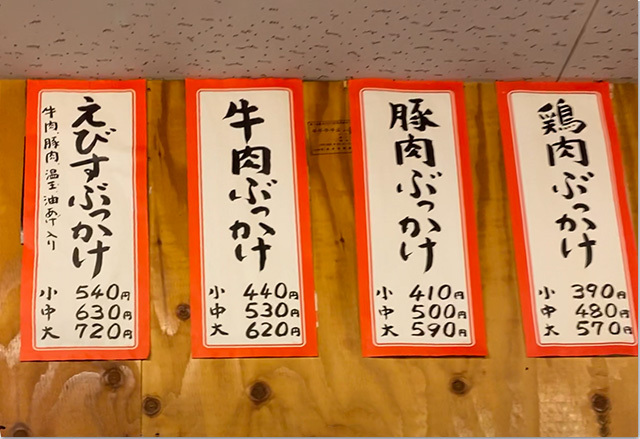 えびすぶっかけ
牛肉、豚肉、温玉、油あげ入り
小 540円
中 630円
大 720円
牛肉ぶっかけ
小 440円
中 530円
大 620円
豚肉ぶっかけ
小 410円
中 500円
大 590円
鶏肉ぶっかけ
小 390円
中 480円
大 570円